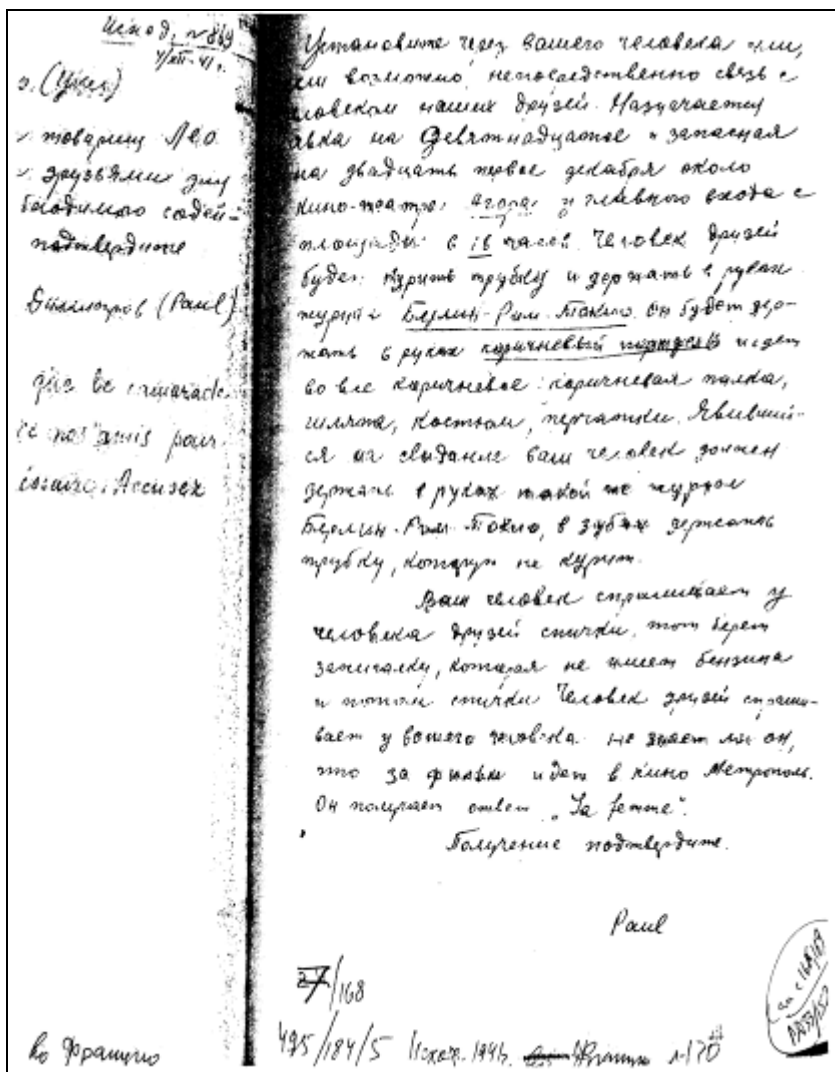 Исход. № 869
4/XII-41 г.
(Уке)
товарищ Лео.
друзьями для
бходимого содей-
подтвердите
Димитров (Paul)
que le camarade
nos amis pour
Accusez
во Францию
Установите через вашего человека или,
если возможно, непосредственно связь с
человеком наших друзей. Назначается
явка на девятнадцатое и запасная
на двадцать первое декабря около
кино-театра Агора у главного входа с
площади в 16 часов. Человек друзей
будет курить трубку и держать в руках
журнал Берлин-Рим-Токио. Он будет дер-
жать в руках коричневый портфель и одет
во все коричневое: коричневая палка,
шляпа, костюм, перчатки. Явивший-
ся на свидание ваш человек должен
держать в руках такой же журнал
Берлин-Рим-Токио, в зубах держать
трубку, которую не курит.
Ваш человек спрашивает у
человека друзей спички, тот берет
зажигалку, которая не имеет бензина
и потом спички. Человек друзей спраши-
вает у вашего человека не знает ли он,
что за фильм идет в кино Метрополь.
Он получает ответ „La femme".
Получение подтвердите.
Paul
27/168
495/184/5 Исход. 1941г. Франция л-170